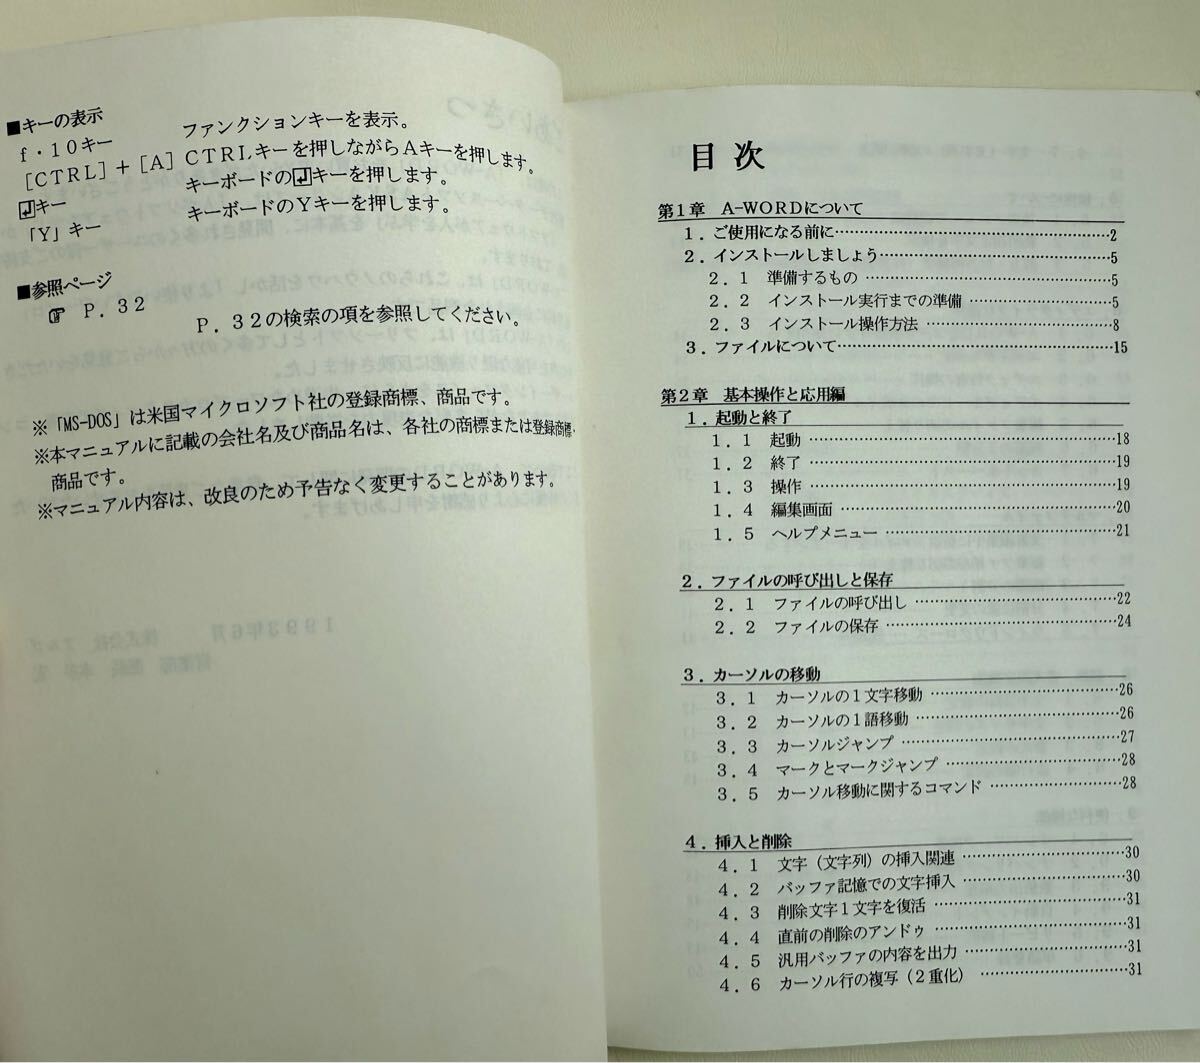 ■キーの表示
f・10キー　ファンクションキーを表示。
[CTRL]+[A]　CTRLキーを押しながらAキーを押します。
↵キー　キーボードの↵キーを押します。
「Y」キー　キーボードのYキーを押します。
■参照ページ
☞ P.32　P.32の検索の項を参照してください。
※「MS-DOS」は米国マイクロソフト社の登録商標、商品です。
※本マニュアルに記載の会社名及び商品名は、各社の商標または登録商標、
商品です。
※マニュアル内容は、改良のため予告なく変更することがあります。
目次
第1章　A-WORDについて
1.ご使用になる前に……2
2.インストールしましょう……5
2.1　準備するもの……5
2.2　インストール実行までの準備……5
2.3　インストール操作方法……8
3.ファイルについて……15
第2章　基本操作と応用編
1.起動と終了
1.1　起動……18
1.2　終了……19
1.3　操作……19
1.4　編集画面……20
1.5　ヘルプメニュー……21
2.ファイルの呼び出しと保存
2.1　ファイルの呼び出し……22
2.2　ファイルの保存……24
3.カーソルの移動
3.1　カーソルの1文字移動……26
3.2　カーソルの1語移動……26
3.3　カーソルジャンプ……27
3.4　マークとマークジャンプ……28
3.5　カーソル移動に関するコマンド……28
4.挿入と削除
4.1　文字(文字列)の挿入関連……30
4.2　バッファ記憶での文字挿入……30
4.3　削除文字1文字を復活……31
4.4　直前の削除のアンドゥ……31
4.5　汎用バッファの内容を出力……31
4.6　カーソル行の複写(2重化)……31